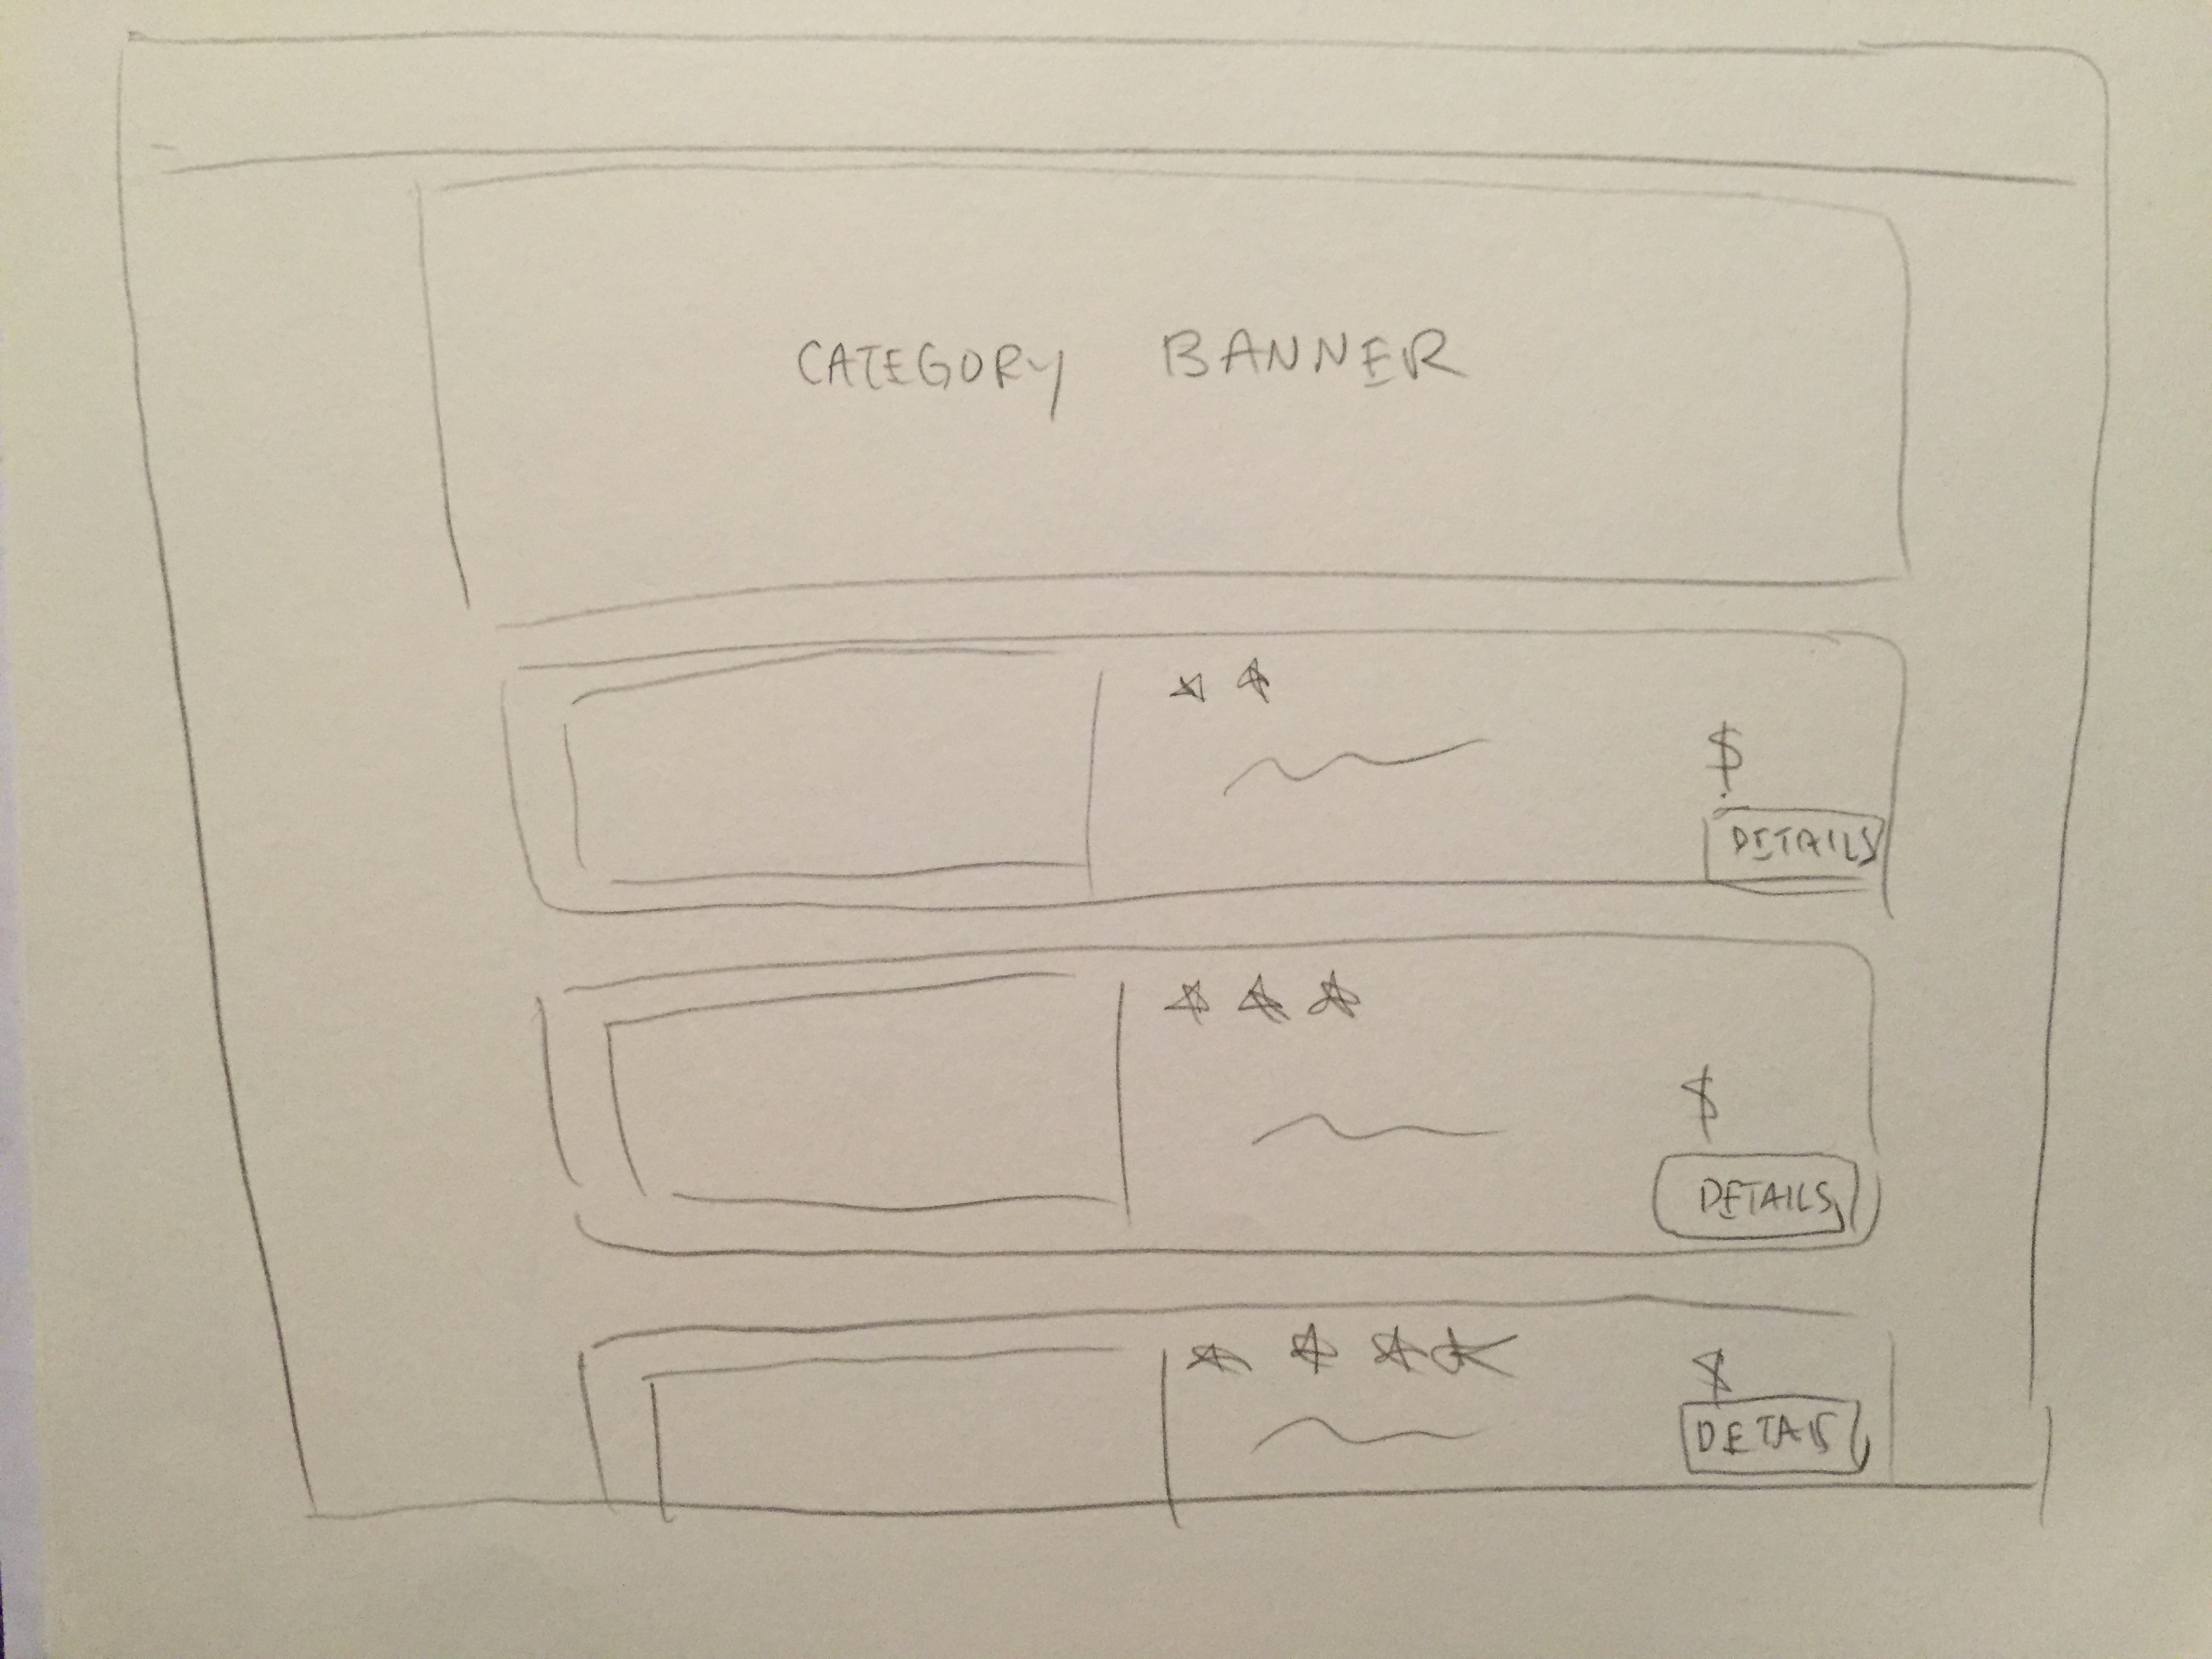 CATEGORY BANNER
$
DETAILS
$
DETAILS
$
DETAIS